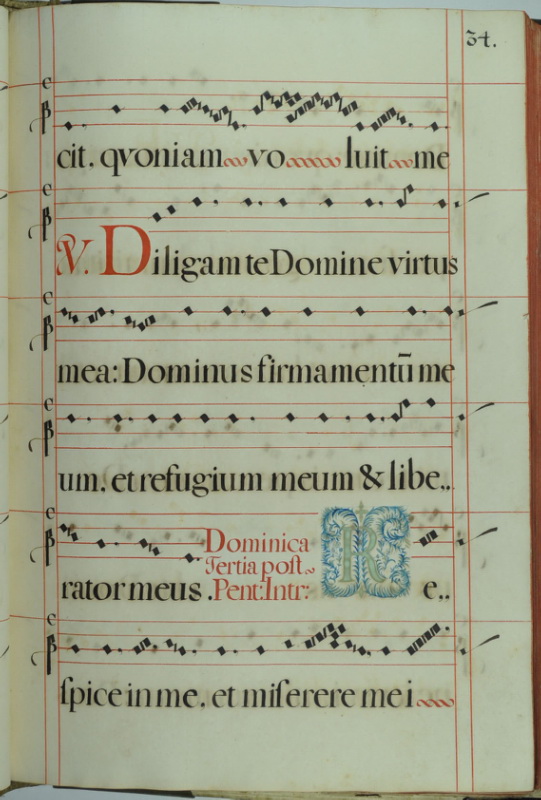 34.
cit. qvoniam vo luit me
V. Diligam te Domine virtus
mea: Dominus firmamentū me
um. et refugium meum & libe..
Dominica
Tertia poſt
rator meus . Pent: Intr: R e..
ſpice in me. et miſerere mei